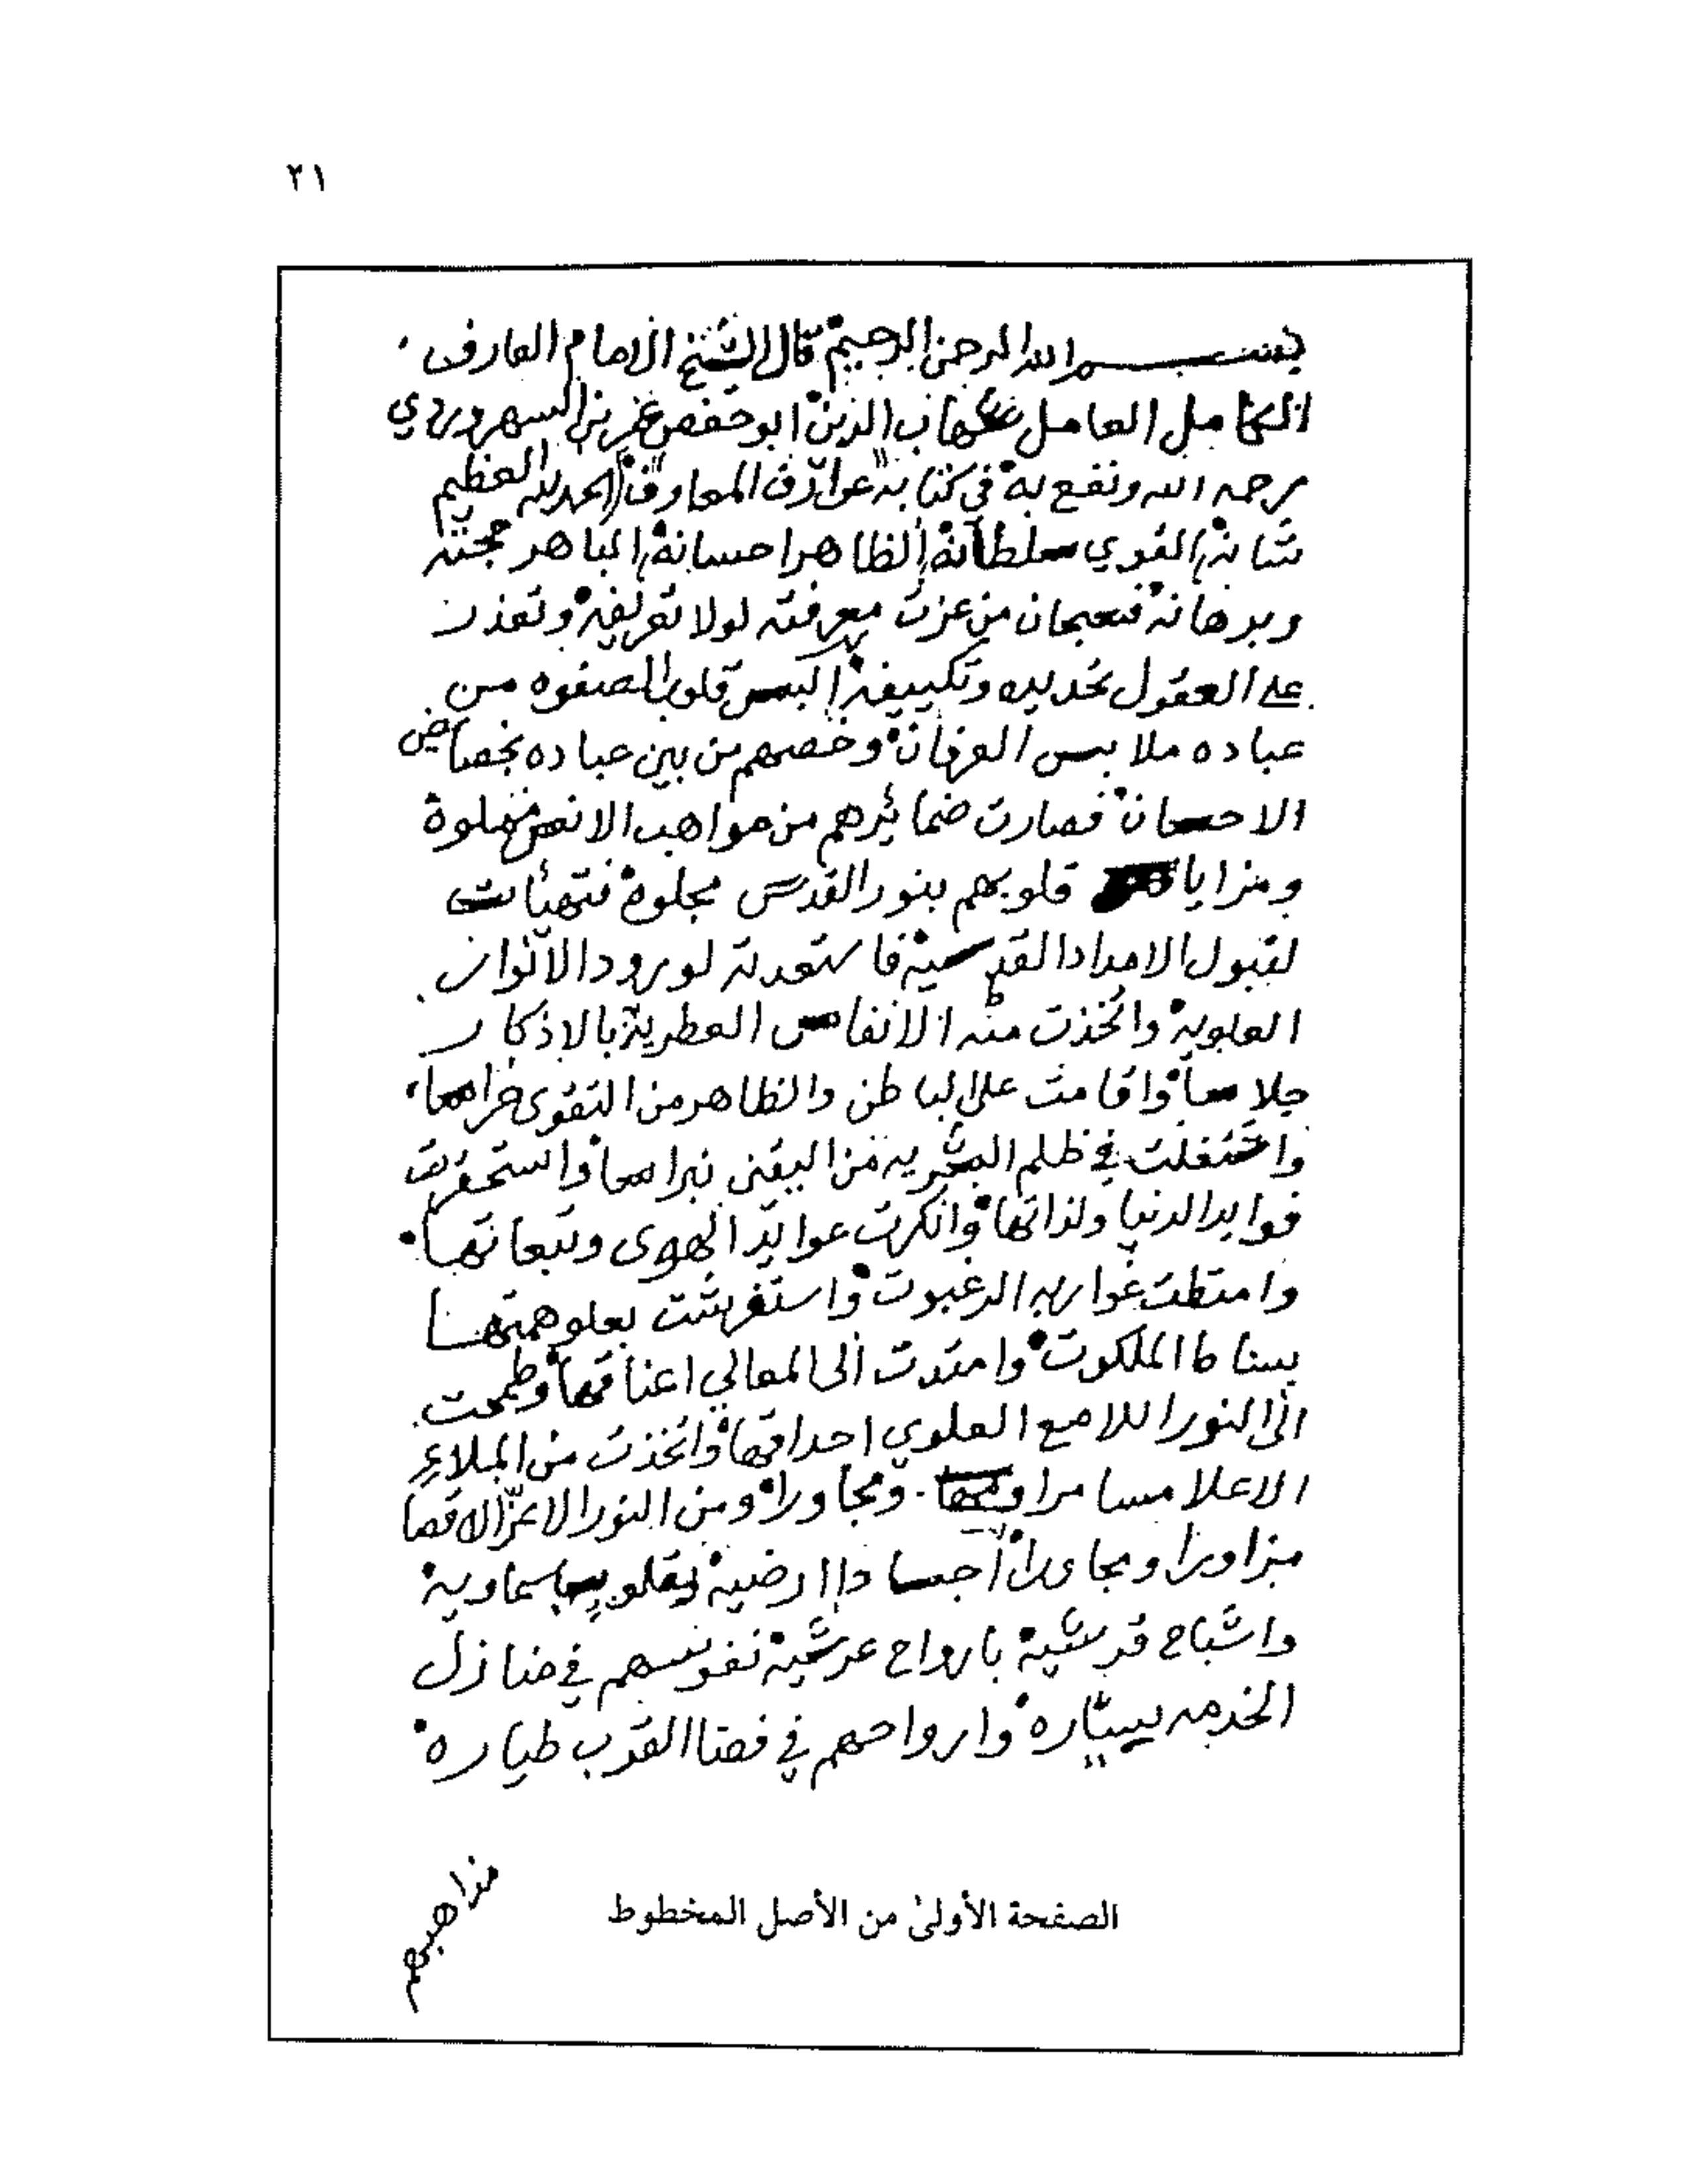 ٢١
بسم الله الرحمن الرحيم قال الشيخ الامام العارف
الكامل العامل شهاب الدين ابو حفص عمر بن السهروردي
رحمه الله ونفع به في كتابه عوارف المعارف الحمد لله العظيم
شانه القوي سلطانه الظاهر احسانه الباهر حجته
وبرهانه فسبحان من عزت معرفته لولا تعريفه وتعذر
على العقول تحديده وتكييفه البس قلوب الصفوه من
عباده ملابس العرفان وخصهم من بين عباده بخصائص
الاحسان فصارت ضمائرهم من مواهب الانس مملوة
ومرايا قلوبهم بنور القدس مجلوة فتهيأت
لقبول الامداد القدسيه فاستعدت لورود الانوار
العلويه واتخذت منه الانفاس العطرية بالاذكار
جلاسا واقامت على الباطن والظاهر من التقوى حراسا
واشتغلت في ظلم البشريه من اليقين نبراسا واستحقرت
فوايد الدنيا ولذاتها وانكرت عوايد الهوى وتبعاتها
وامتطت غوارب الرغبوت واستفرشت بعلو همتها
بساط الملكوت وامتدت الى المعالي اعناقها وطمحت
الى النور اللامع العلوي احداقها واتخذت من الملاء
الاعلا مسامرا ومجاورا ومن النور الاعز الاقصا
مزاورا ومجاورا اجسادا ارضيه بقلوب سماويه
واشباح فرشيه بارواح عرشيه نفوسهم في منازل
الخدمه سيّاره وارواحهم في فضا القرب طياره
مذاهبهم
الصفحة الأولىٰ من الأصل المخطوط